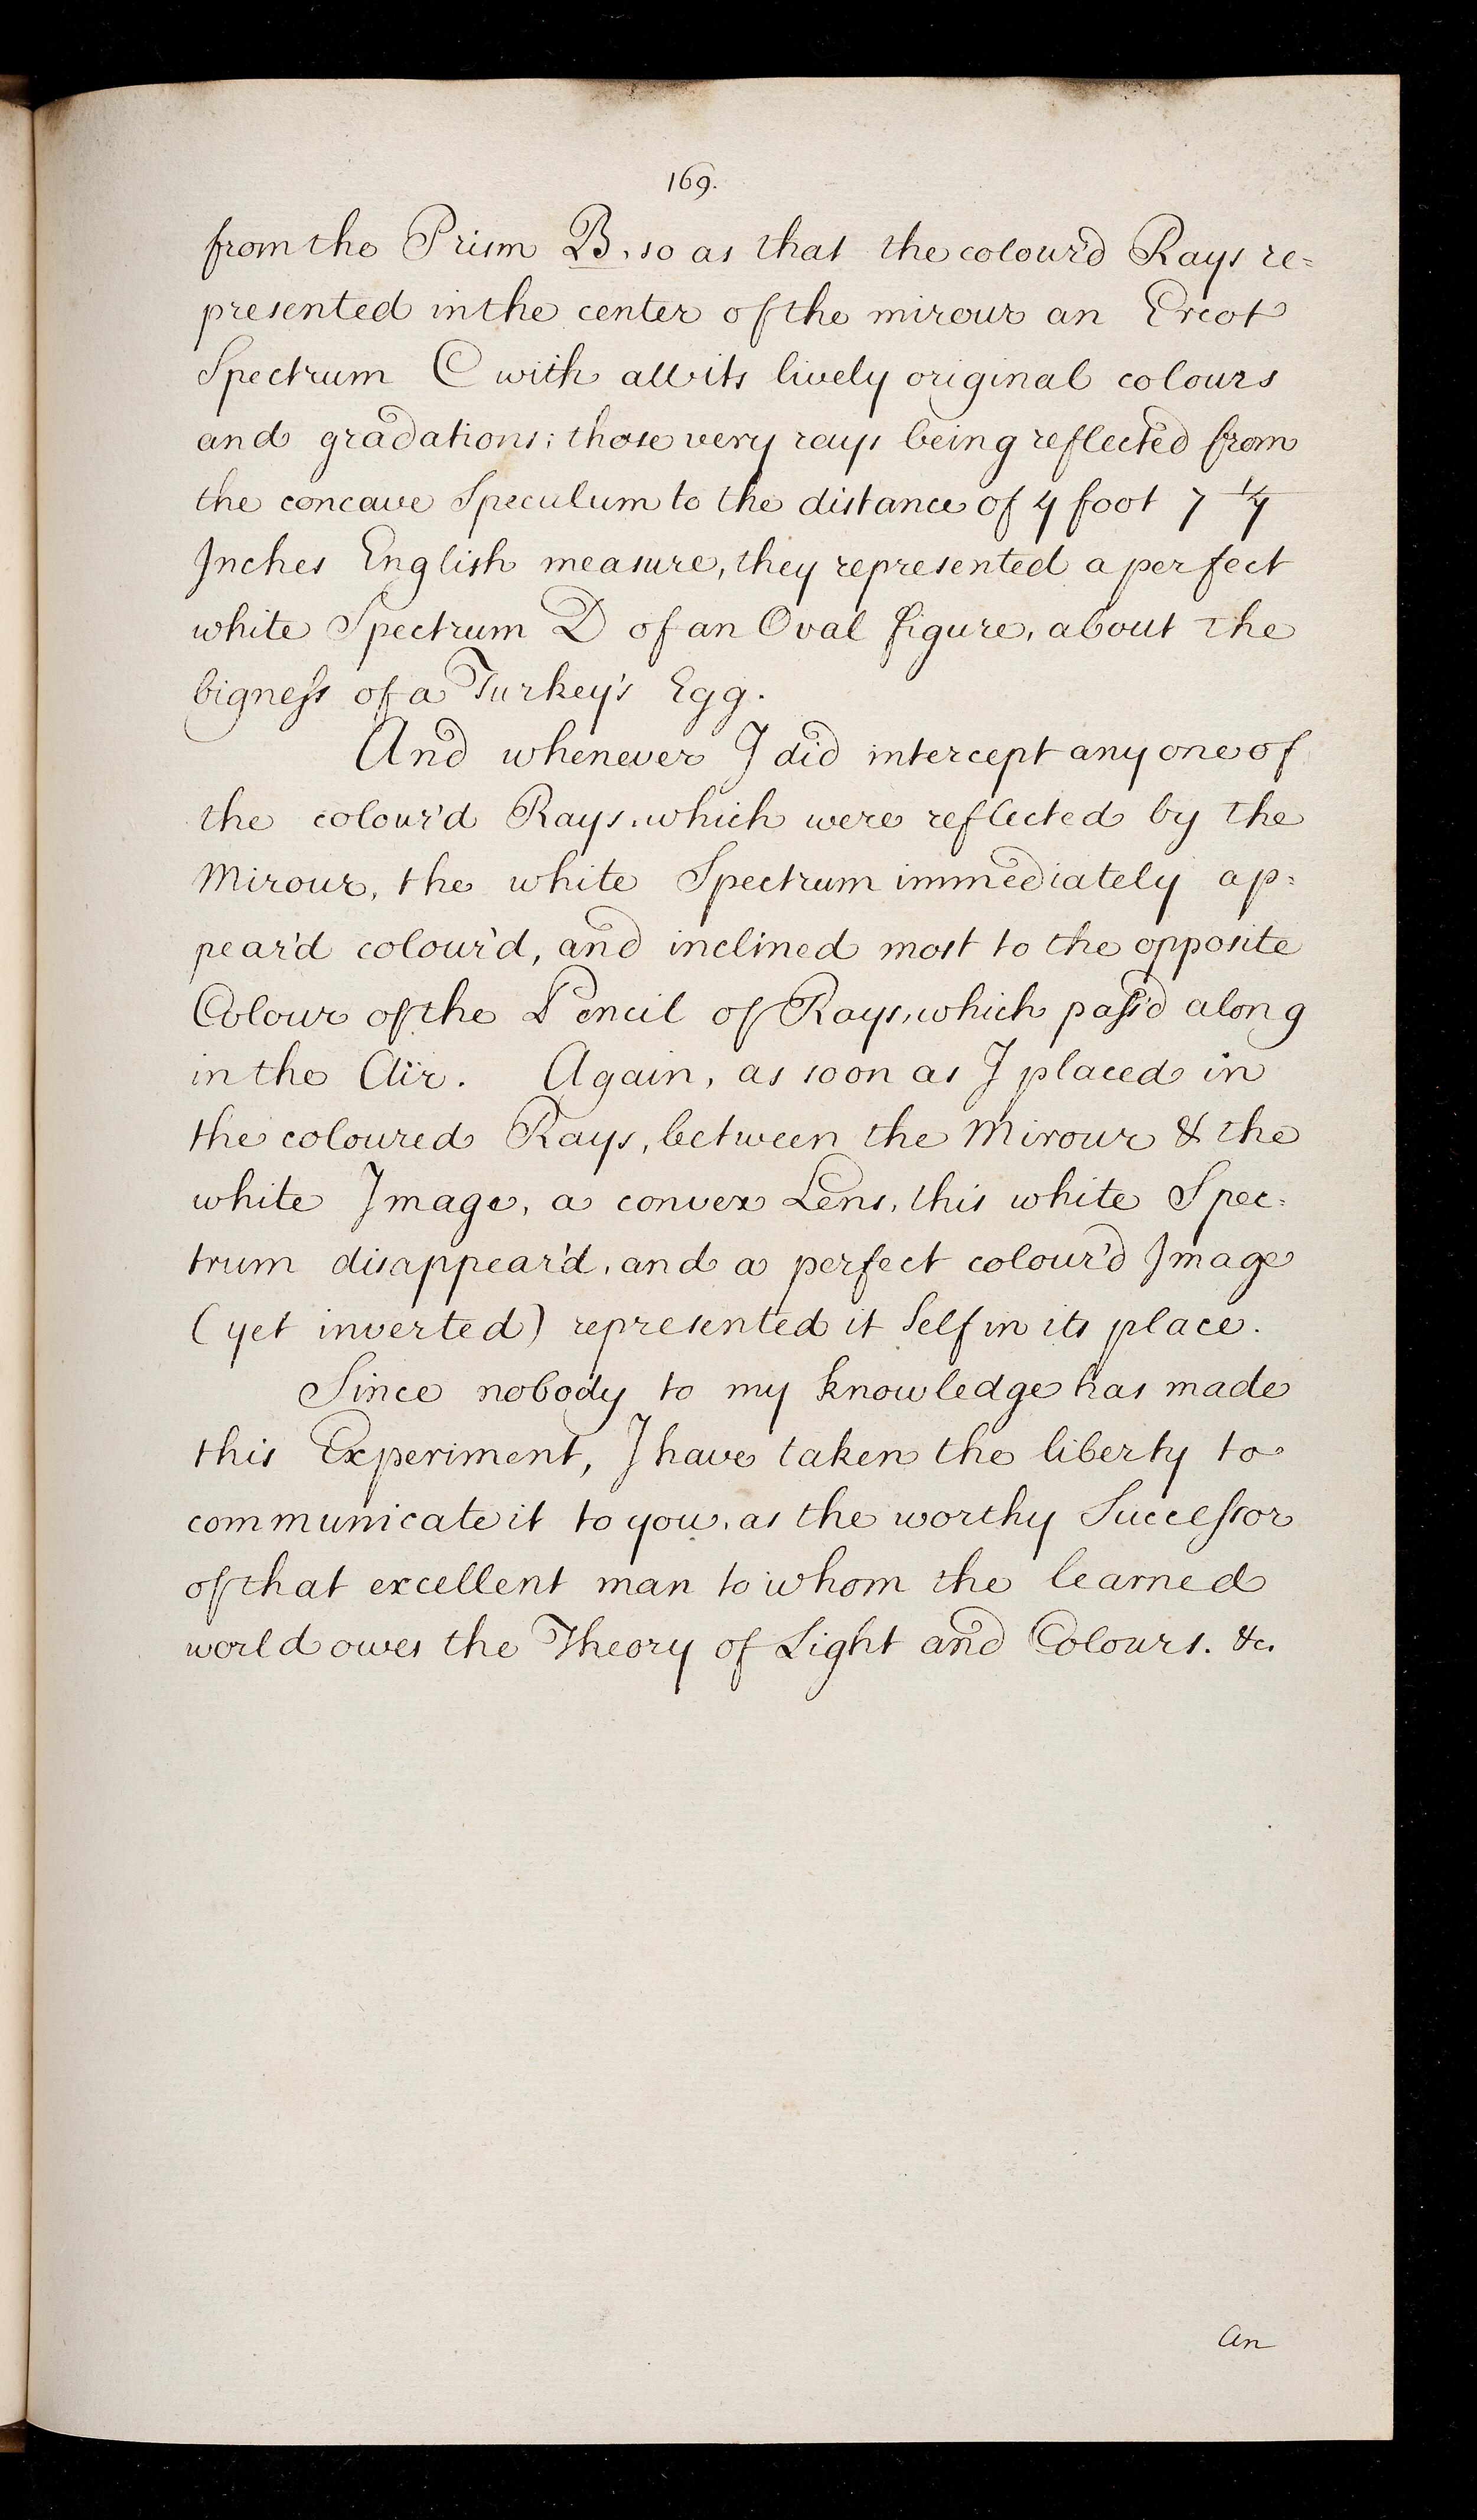 169.
from the Prism B, so as that the colour'd Rays re=
presented in the center of the mirour an Erect
Spectrum C with all its lively original colours
and gradations; those very rays being reflected from
the concave Speculum to the distance of 4 foot 7 1/4
Inches English measure, they represented a perfect
white Spectrum D of an Oval figure, about the
bigneſs of a Turkey's Egg.
And whenever I did intercept any one of
the colour'd Rays, which were reflected by the
Mirour, the white Spectrum immediately ap=
pear'd colour'd, and inclined most to the opposite
Colour of the Pencil of Rays, which paſs'd along
in the Air. Again, as soon as I placed in
the coloured Rays, between the Mirour & the
white Image, a convex Lens, this white Spec=
trum disappear'd, and a perfect colour'd Image
(yet inverted) represented it Self in its place.
Since nobody to my knowledge has made
this Experiment, I have taken the liberty to
communicate it to you, as the worthy Succeſsor
of that excellent man to whom the learned
world owes the Theory of Light and Colours. &c.
An